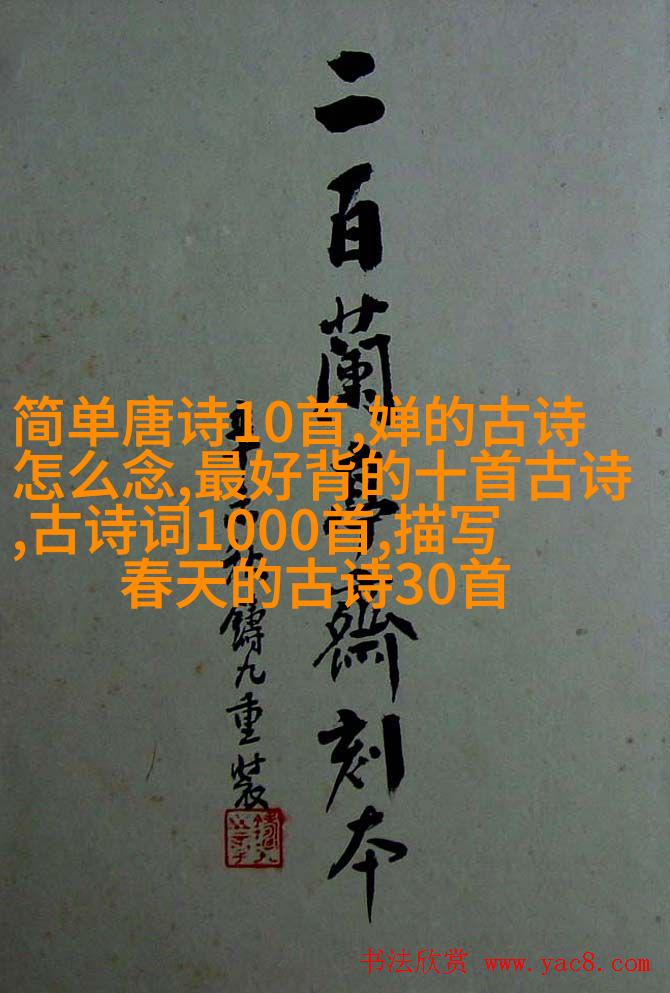 二百蘭亭齋刻本
鑄九重裝
简单唐诗10首,婵的古诗
怎么念,最好背的十首古诗
,古诗词1000首,描写
春天的古诗30首
书法欣赏 www.yac8.com